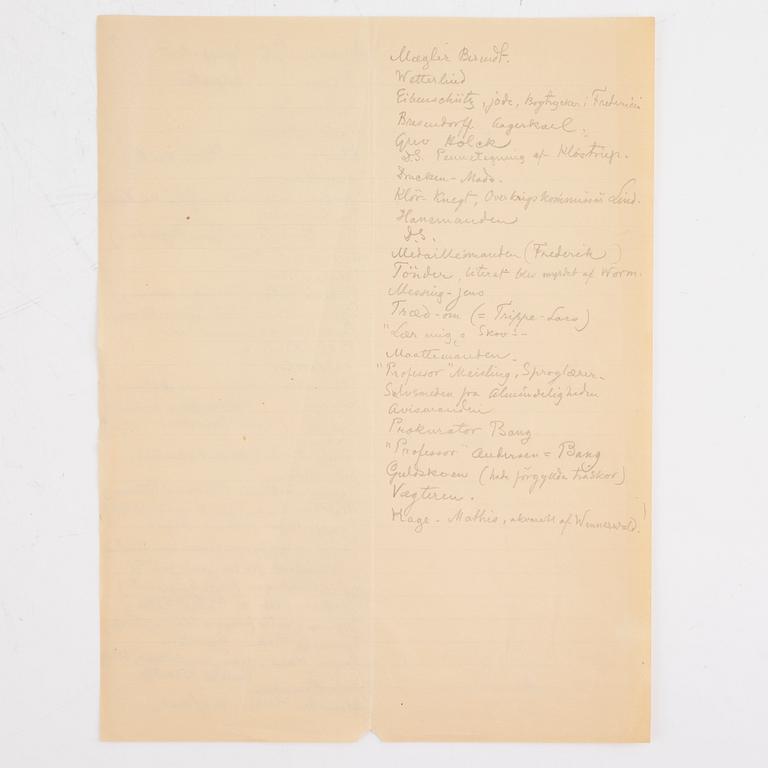 Mægler Berendt.
Wetterlind
Eibenschütz, jøde, Bogtrykker i Fredericia
Bresendorff Aagerkarl,
Grev Holck
D.S. Pennetegning af Klöstrup.
Drucken-Mads.
Klör-Knegt, Overkrigskommissär Lind.
Hansemanden
D.S.
Medaillemanden (Frederik)
Tönder, literat blev myrdet af Worm.
Messing-Jens
Træd-om (= Trippe-Lars)
"Lær mig o Skov!-
Maattemanden.
"Professor" Meisling, Sproglærer.
Sølvsmeden fra Almindeligheden
Avismanden
Prokurator Bang
"Professor" Andersen = Bang
Guldskoen (hade förgyllda träskor)
Vægteren.
Kage-Mathis, akvarell af Wennerwald.